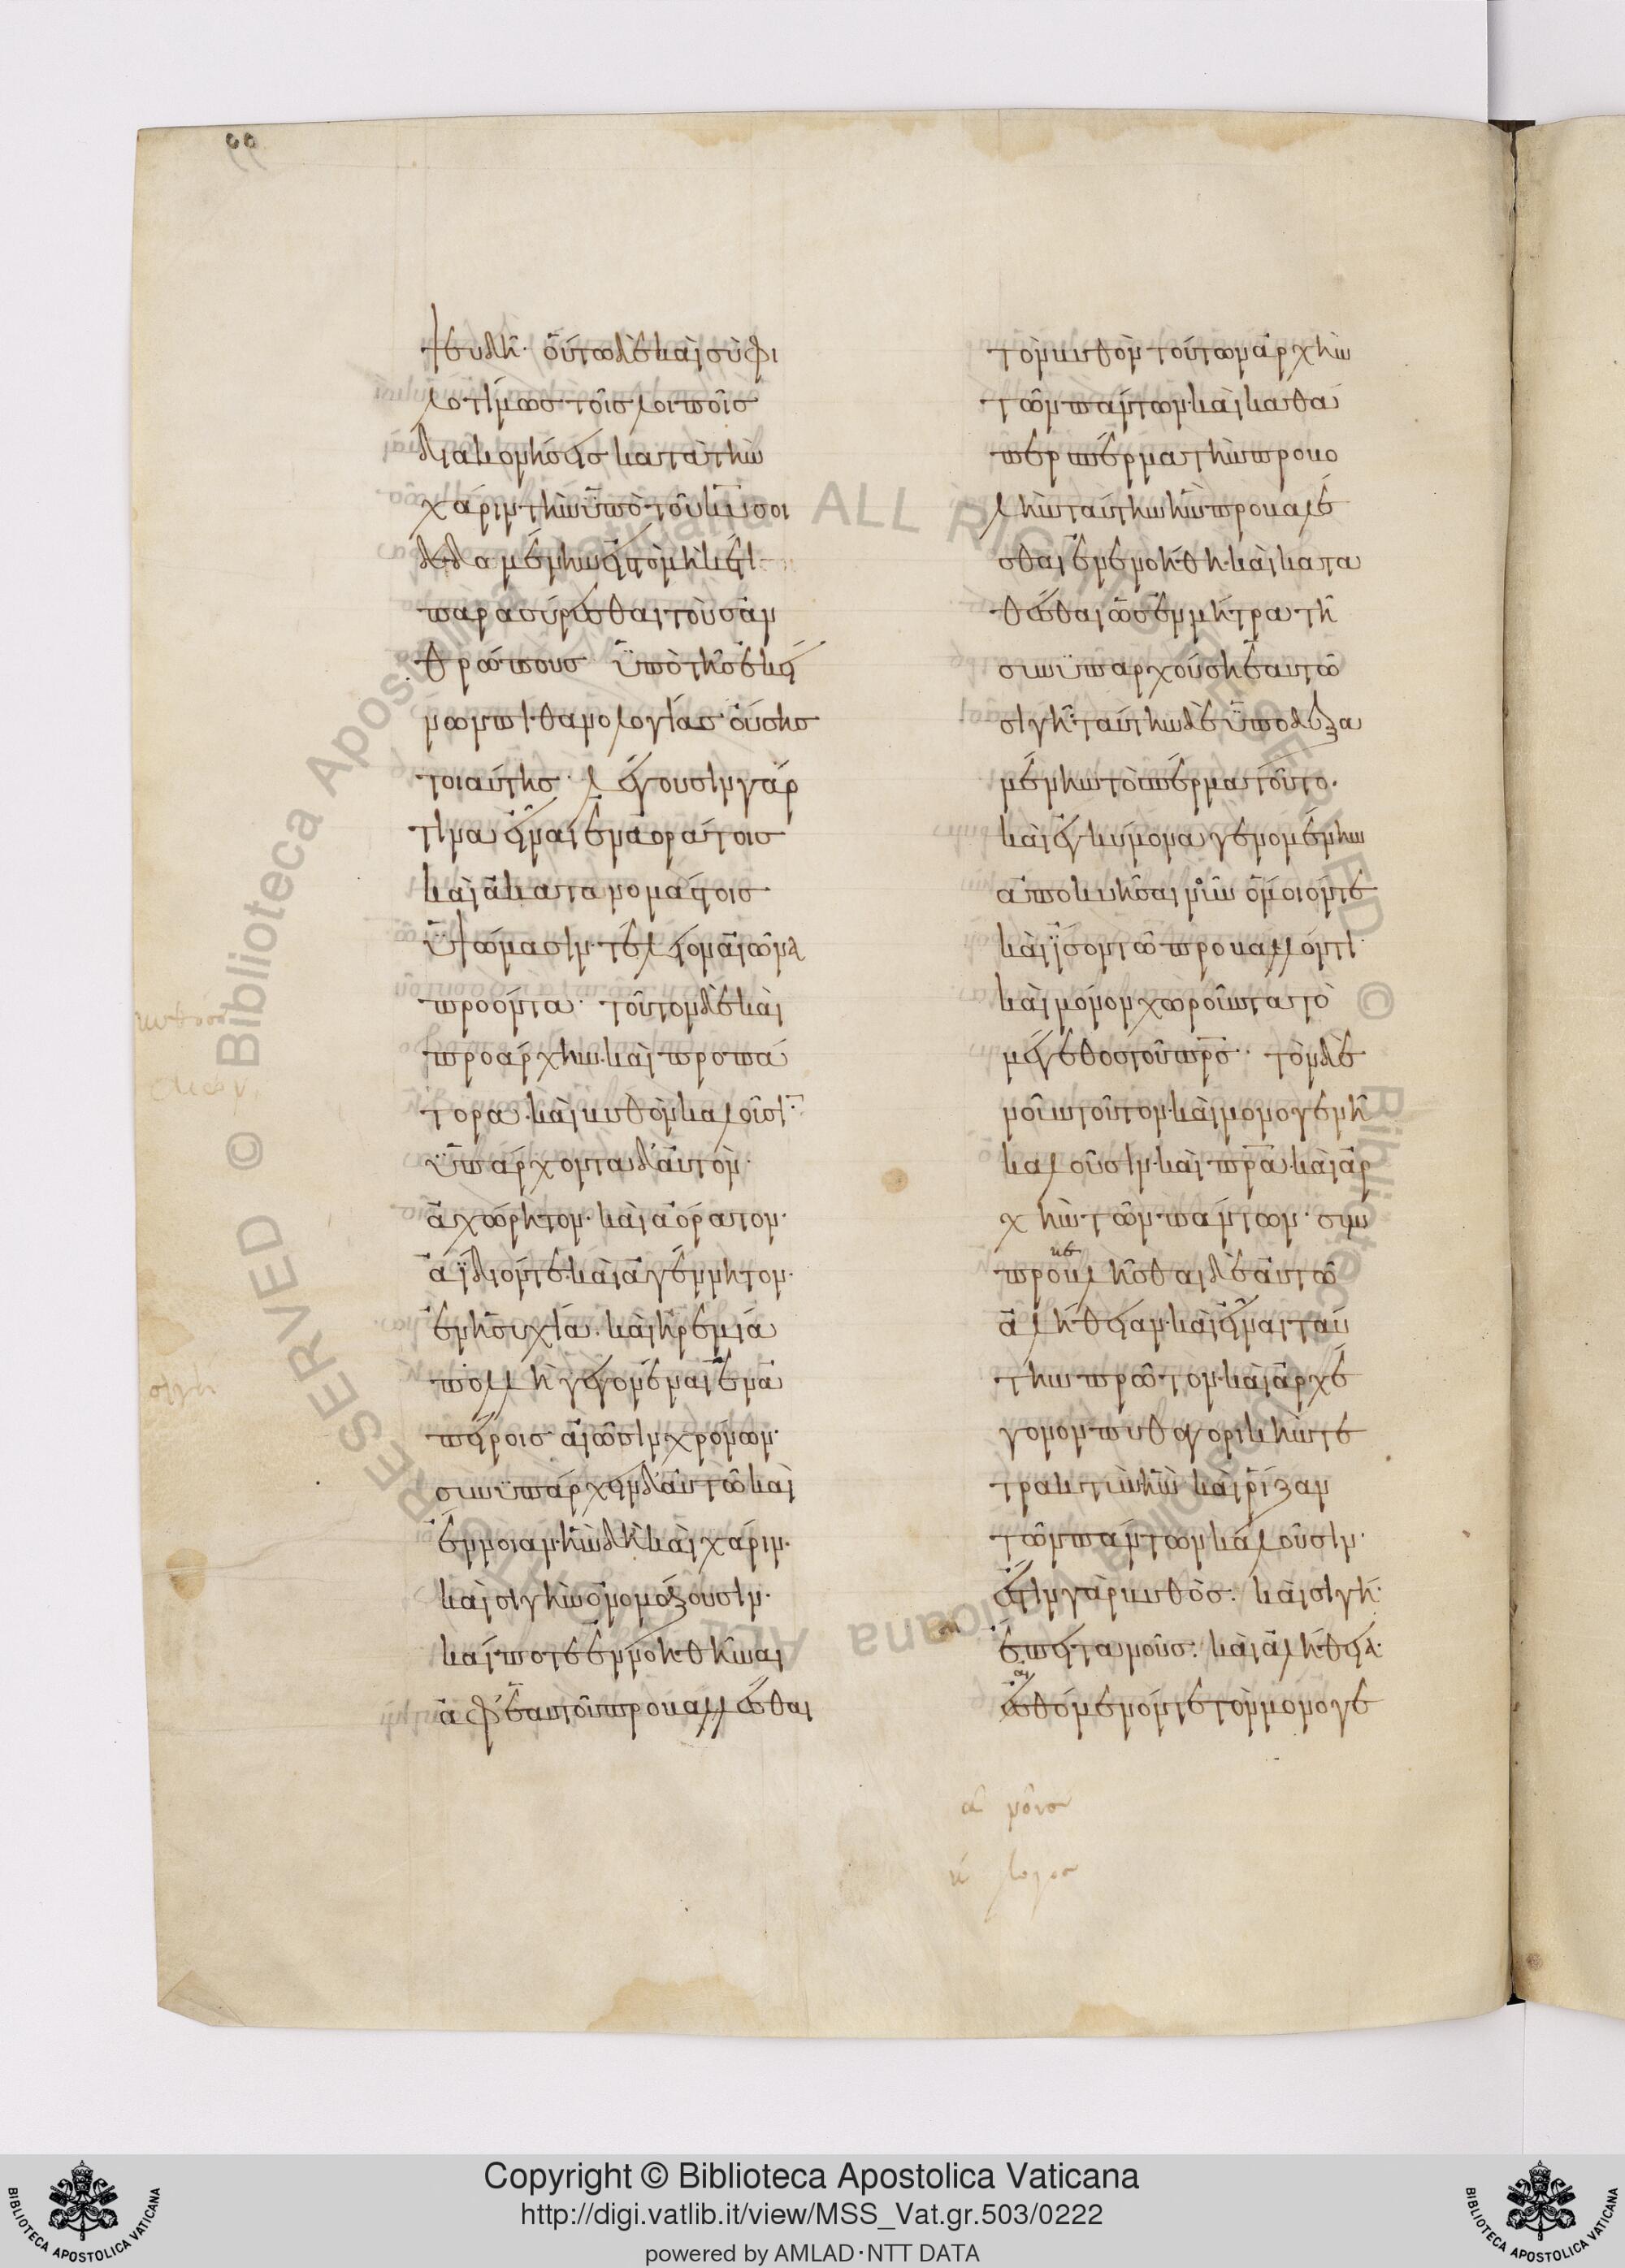 ψευδῆ· οὕτω δὲ καὶ σὺ φι
λοτίμως τοῖς λοιποῖς
διακονήσεις κατὰ τὴν
χάριν τὴν ὑπὸ τοῦ κ̅υ̅ σοι
δεδομένην εἰς τὸ μηκέτι
παρασύρεσθαι τοὺς ἀν
θρώπους ὑπὸ τῆς ἐκεί
νων πιθανολογίας οὔσης
τοιαύτης· λέγουσιν γάρ
τινα εἶναι ἐν ἀοράτοις
καὶ ἀκατανομάτοις
ὑψώμασιν τέλειον αἰῶνα
προόντα· τοῦτον δὲ καὶ
προαρχὴν· καὶ προπά
τορα· καὶ βυθὸν καλοῦσι·
ὑπάρχοντα δ' αὐτὸν
ἀχώρητον· καὶ ἀόρατον·
ἀΐδιόν τε· καὶ ἀγέννητον·
ἐν ἡσυχία· καὶ ἠρεμία
πολλῆ γεγονέναι ἐν ἀ
πείροις αἰῶσιν χρόνων·
συνϋπάρχειν δ' αὐτῶ καὶ
ἔννοιαν· ἣν δὴ καὶ χάριν·
καὶ σιγὴν ὀνομάζουσιν·
καί ποτε ἐννοηθῆναι
ἀφ' ἑαυτοῦ προβαλλέσθαι
τὸν βυθὸν τοῦτων ἀρχὴν
τῶν πάντων· καὶ καθά
περ σπέρμα τὴν προβο
λὴν ταύτην ἣν προβαλέ
σθαι ἐνενοήθη· καὶ κατα
θέσθαι ὡς ἐν μήτρα τῆ
συνϋπαρχούση ἑαυτῶ
σιγῆ· ταύτην δὲ ὑποδεξα
μένην τὸ σπέρμα τοῦτο·
καὶ ἐγκύμονα γενομένην
ἀποκυῆσαι νοῦν ὅμοιόν τε
καὶ ἴσον τῶ προβαλλόντι·
καὶ μόνον χωροῦντα τὸ
μέγεθος τοῦ π̅ρ̅ς̅· τὸν δὲ
νοῦν τοῦτον· καὶ μονογενῆ
καλοῦσιν· καὶ π̅ρ̅α̅· καὶ ἀρ
χὴν τῶν πάντων· συμ
προβεβλῆσθαι δὲ αὐτῶ
ἀλήθειαν· καὶ εἶναι ταύ
την πρῶτον· καὶ ἀρχέ
γονον πυθαγορικὴν τε
τρακτὺν ἣν καὶ ῥίζαν
τῶν πάντων καλοῦσιν·
ἔστιν γὰρ βυθὸς· καὶ σιγή·
ἔπειτα νοῦς· καὶ ἀλήθεια·
αἰσθόμενόν τε τὸν μονογε
νοῦς
λόγος
βυθός
αἰών
σιγή
Copyright © Biblioteca Apostolica Vaticana
http://digi.vatlib.it/view/MSS_Vat.gr.503/0222
powered by AMLAD·NTT DATA